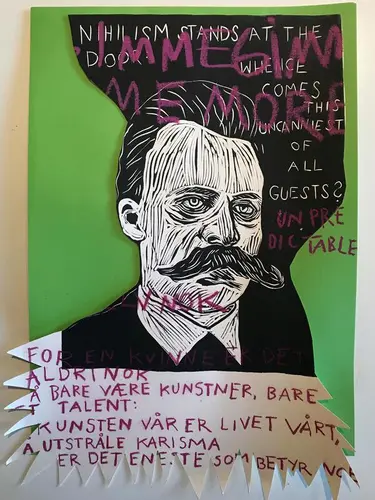 NIHILISM STANDS AT THE
DOOR
WHENCE
COMES
THIS
UNCANNIEST
OF
ALL
GUESTS?
GIM
ME MORE
UNPRE
DICTABLE
FOR EN KVINNE ER DET
ALDRI NOK
Å BARE VÆRE KUNSTNER, BARE
TALENT:
KUNSTEN VÅR ER LIVET VÅRT,
Å UTSTRÅLE KARISMA
ER DET ENESTE SOM BETYR NOE